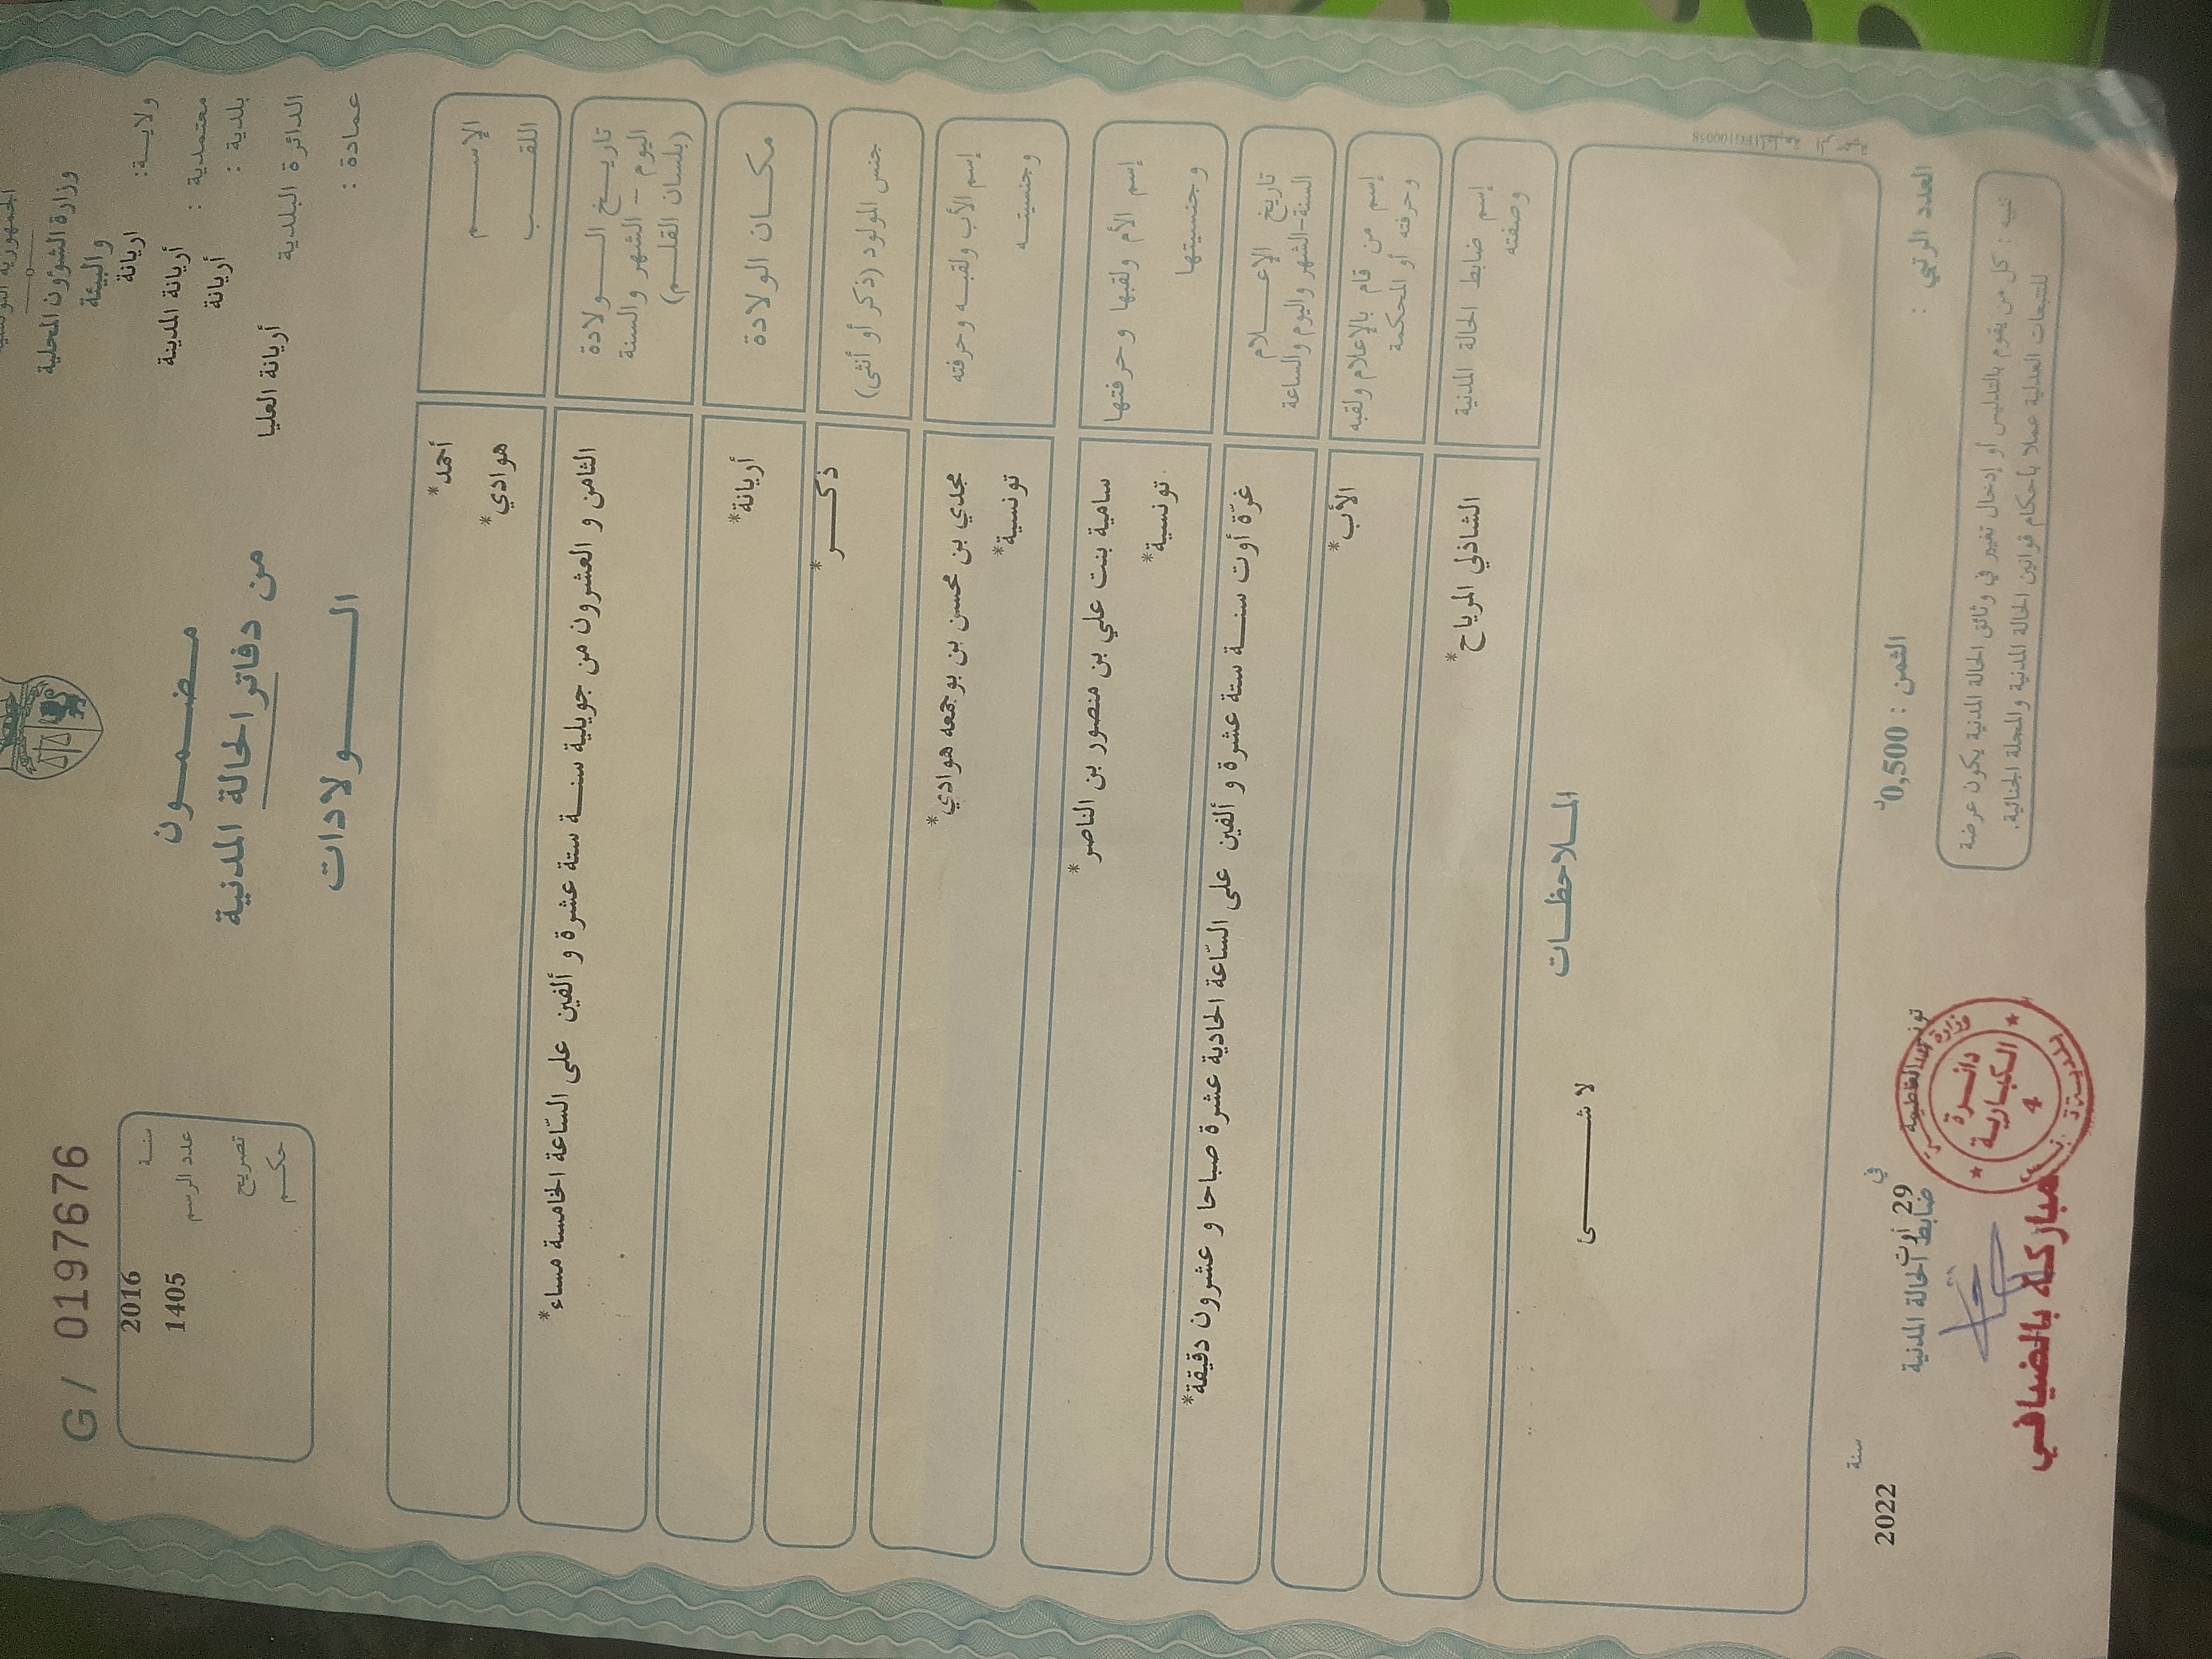 الجمهورية التونسية
وزارة الشؤون المحلية
والبيئة
ولاية: اريانة
معتمدية : أريانة المدينة
بلدية : أريانة
الدائرة البلدية أريانة العليا
عمادة :
مضمون
من دفاتر الحالة المدنية
الولادات
G / 0197676
سنة 2016
عدد الرسم 1405
تصريح
حكم
الإسم أحمد*
اللقب هوادي*
تاريخ الولادة الثامن و العشرون من جويلية سنة ستة عشرة و ألفين على السّاعة الخامسة مساء*
اليوم – الشهر والسنة
(بلسان القلم)
مكان الولادة أريانة*
جنس المولود (ذكر أو أنثى) ذكر*
إسم الأب ولقبه وحرفته مجدي بن محسن بن بوجمعه هوادي*
وجنسيته تونسية*
إسم الأم ولقبها وحرفتها سامية بنت علي بن منصور بن الناصر*
وجنسيتها تونسية*
تاريخ الإعلام غرّة أوت سنة ستة عشرة و ألفين على السّاعة الحادية عشرة صباحا و عشرون دقيقة*
السنة-الشهر واليوم والساعة
إسم من قام بالإعلام ولقبه الأب*
وحرفته أو المحكمة
إسم ضابط الحالة المدنية الشاذلي المرياح*
وصفته
الملاحظات
لا شئ
العدد الرتبي :
الثمن : 0,500د
في 29 أوت سنة 2022
ضابط الحالة المدنية
دائرة
الكبارية
4
مباركة بالضيافي
تنبيه : كل من يقوم بالتدليس أو إدخال تغيير في وثائق الحالة المدنية يكون عرضة
للتتبعات العدلية عملا بأحكام قوانين الحالة المدنية والمجلة الجنائية.